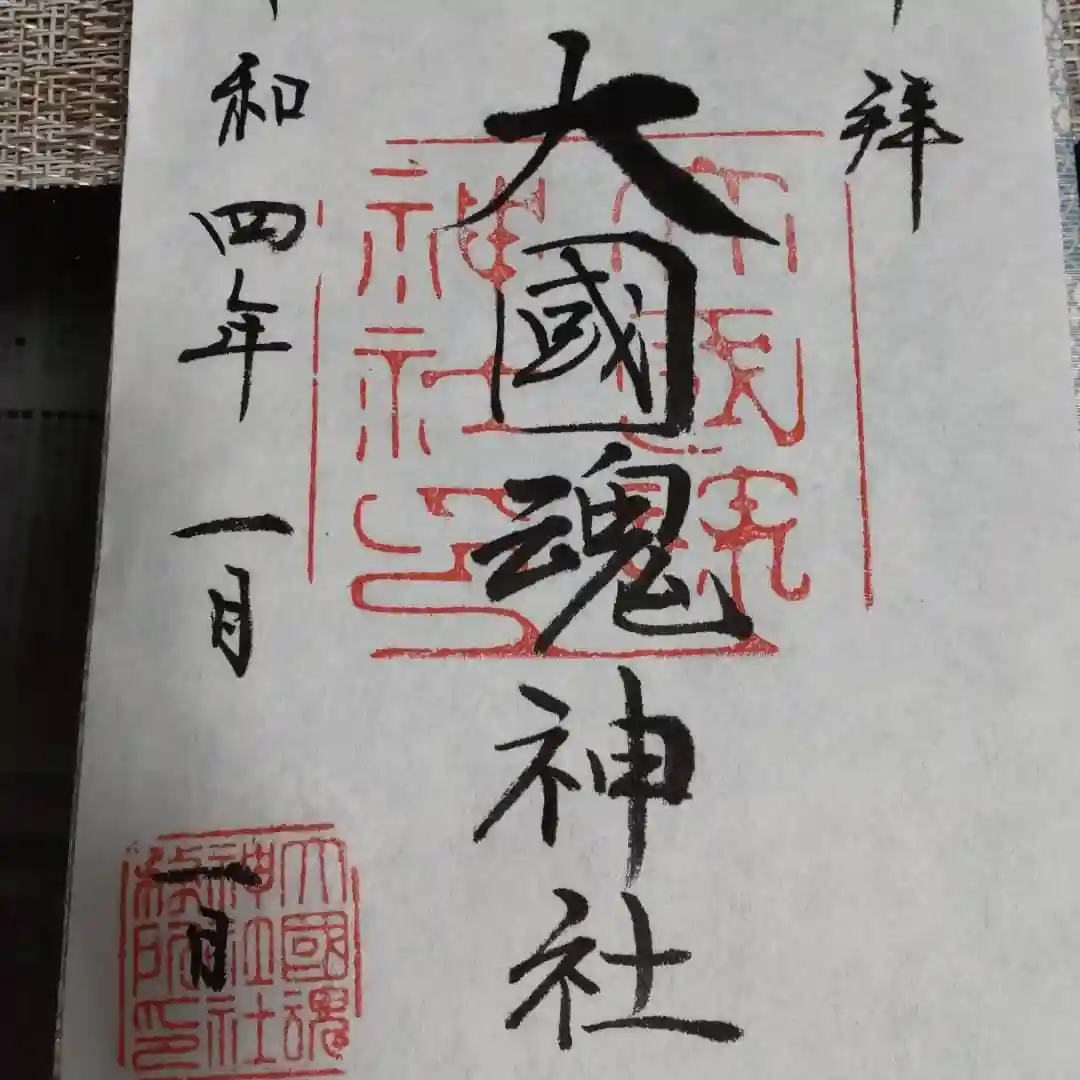 拝
大國魂神社
和四年一月一日
大國魂
神社印
大國魂
神社社
務所印